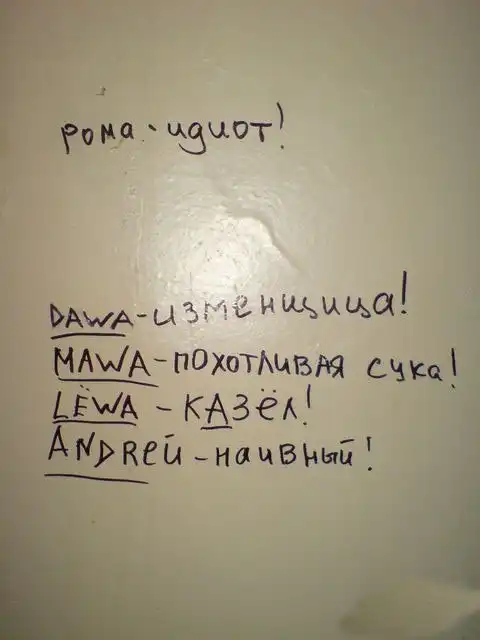 рома - идиот!
DAWA-изменщица!
MAWA-ПОХОТЛИВАЯ сука!
LЁWA - КАЗЁЛ!
ANDRей - наивный!